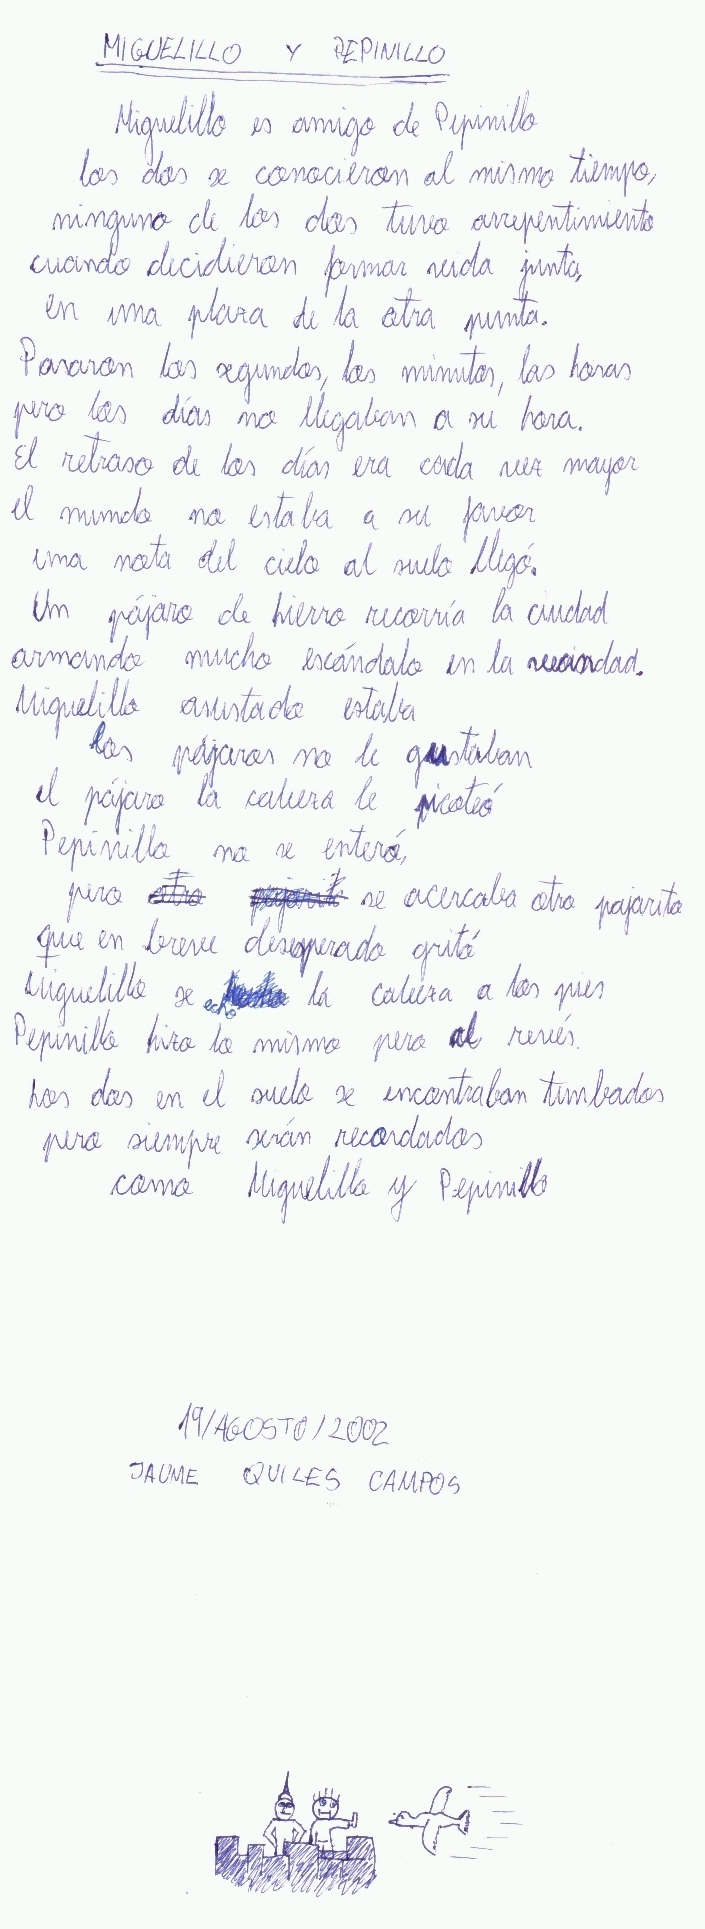 MIGUELILLO Y PEPINILLO
Miguelillo es amigo de Pepinillo
los dos se conocieron al mismo tiempo,
ninguno de los dos tuvo arrepentimiento
cuando decidieron formar vida junta,
en una plaza de la otra punta.
Pasaron los segundos, los minutos, las horas
pero los días no llegaban a su hora.
El retraso de los días era cada vez mayor
el mundo no estaba a su favor
una nota del cielo al suelo llegó.
Un pájaro de hierro recorría la ciudad
armando mucho escándalo en la vecindad.
Miguelillo asustado estaba
los pájaros no le gustaban
el pájaro la cabeza le picoteó
Pepinillo no se enteró,
pero otro pajarit se acercaba otro pajarito
que en breve desesperado gritó
Miguelillo se echó la cabeza a los pies
Pepinillo hizo lo mismo pero al revés.
Los dos en el suelo se encontraban tumbados
pero siempre serán recordados
como Miguelillo y Pepinillo
19/AGOSTO/2002
JAUME QUILES CAMPOS